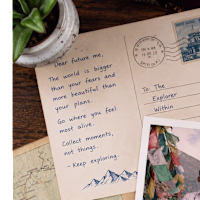 Dear future me,
The world is bigger
than your fears and
more beautiful than
your plans.
Go where you feel
most alive.
Collect moments,
not things.
- Keep exploring.
To: The
Explorer
Within